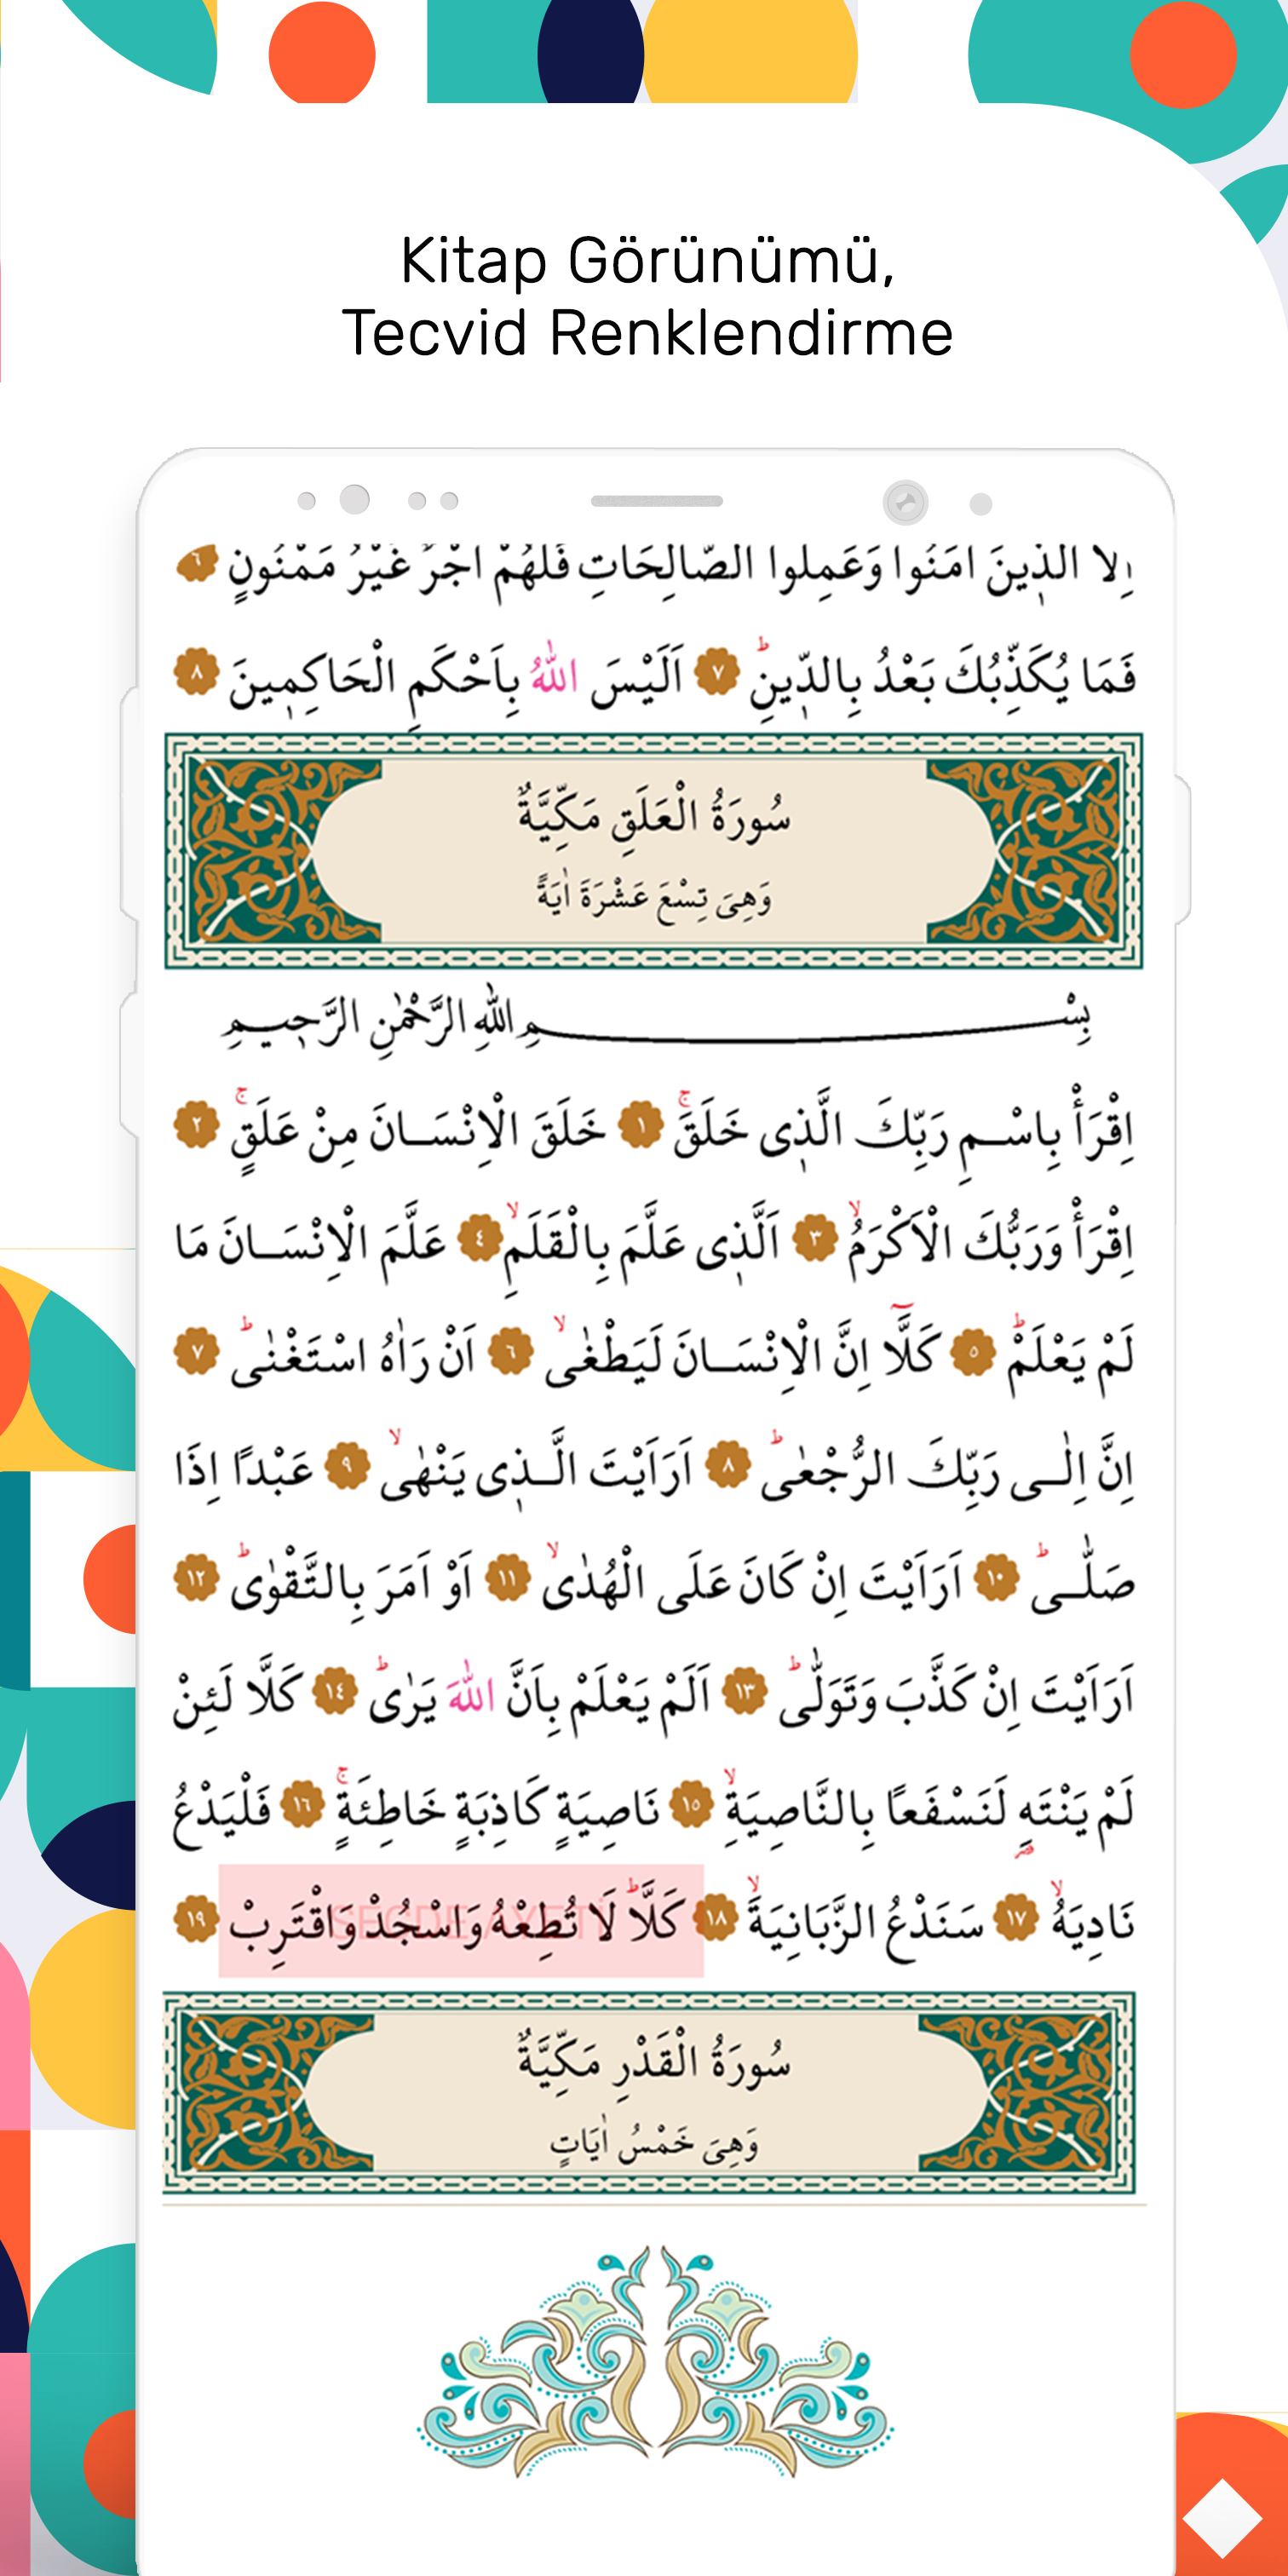 Kitap Görünümü,
Tecvid Renklendirme
اِلَّا الَّذ۪ينَ اٰمَنُوا وَعَمِلُوا الصَّالِحَاتِ فَلَهُمْ اَجْرٌ غَيْرُ مَمْنُونٍ ٦
فَمَا يُكَذِّبُكَ بَعْدُ بِالدّ۪ينِۜ ٧ اَلَيْسَ اللّٰهُ بِاَحْكَمِ الْحَاكِم۪ينَ ٨
سُورَةُ الْعَلَقِ مَكِّيَّةٌ
وَهِىَ تِسْعَ عَشْرَةَ اٰيَةً
بِسْمِ اللّٰهِ الرَّحْمٰنِ الرَّح۪يمِ
اِقْرَأْ بِاسْمِ رَبِّكَ الَّذ۪ى خَلَقَۚ ١ خَلَقَ الْاِنْسَانَ مِنْ عَلَقٍۚ ٢
اِقْرَأْ وَرَبُّكَ الْاَكْرَمُۙ ٣ اَلَّذ۪ى عَلَّمَ بِالْقَلَمِۙ ٤ عَلَّمَ الْاِنْسَانَ مَا
لَمْ يَعْلَمْۜ ٥ كَلَّٓا اِنَّ الْاِنْسَانَ لَيَطْغٰىۙ ٦ اَنْ رَاٰهُ اسْتَغْنٰىۜ ٧
اِنَّ اِلٰى رَبِّكَ الرُّجْعٰىۜ ٨ اَرَاَيْتَ الَّذ۪ى يَنْهٰىۙ ٩ عَبْدًا اِذَا
صَلّٰىۜ ١٠ اَرَاَيْتَ اِنْ كَانَ عَلَى الْهُدٰىۙ ١١ اَوْ اَمَرَ بِالتَّقْوٰىۜ ١٢
اَرَاَيْتَ اِنْ كَذَّبَ وَتَوَلّٰىۜ ١٣ اَلَمْ يَعْلَمْ بِاَنَّ اللّٰهَ يَرٰىۜ ١٤ كَلَّا لَئِنْ
لَمْ يَنْتَهِ لَنَسْفَعًا بِالنَّاصِيَةِۙ ١٥ نَاصِيَةٍ كَاذِبَةٍ خَاطِئَةٍۚ ١٦ فَلْيَدْعُ
نَادِيَهُۙ ١٧ سَنَدْعُ الزَّبَانِيَةَۙ ١٨ كَلَّاۜ لَا تُطِعْهُ وَاسْجُدْ وَاقْتَرِبْ ١٩
SECDE AYETİ
سُورَةُ الْقَدْرِ مَكِّيَّةٌ
وَهِىَ خَمْسُ اٰيَاتٍ